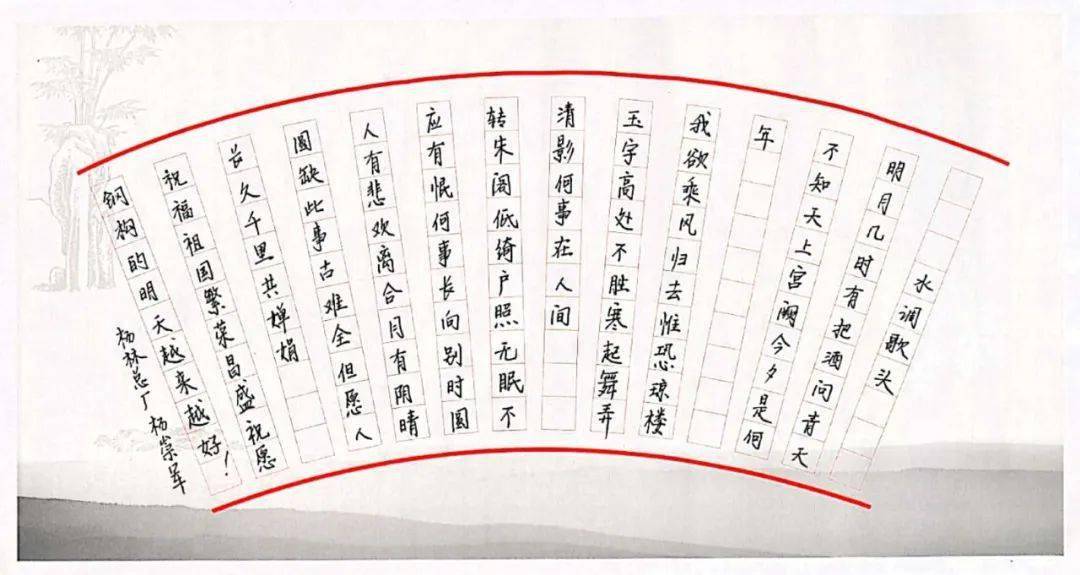 水调歌头
明月几时有把酒问青天
不知天上宫阙今夕是何
年
我欲乘风归去惟恐琼楼
玉宇高处不胜寒起舞弄
清影何事在人间
转朱阁低绮户照无眠不
应有恨何事长向别时圆
人有悲欢离合月有阴晴
圆缺此事古难全但愿人
长久千里共婵娟
祝福祖国繁荣昌盛祝愿
钢构的明天越来越好！
杨林总厂杨崇军